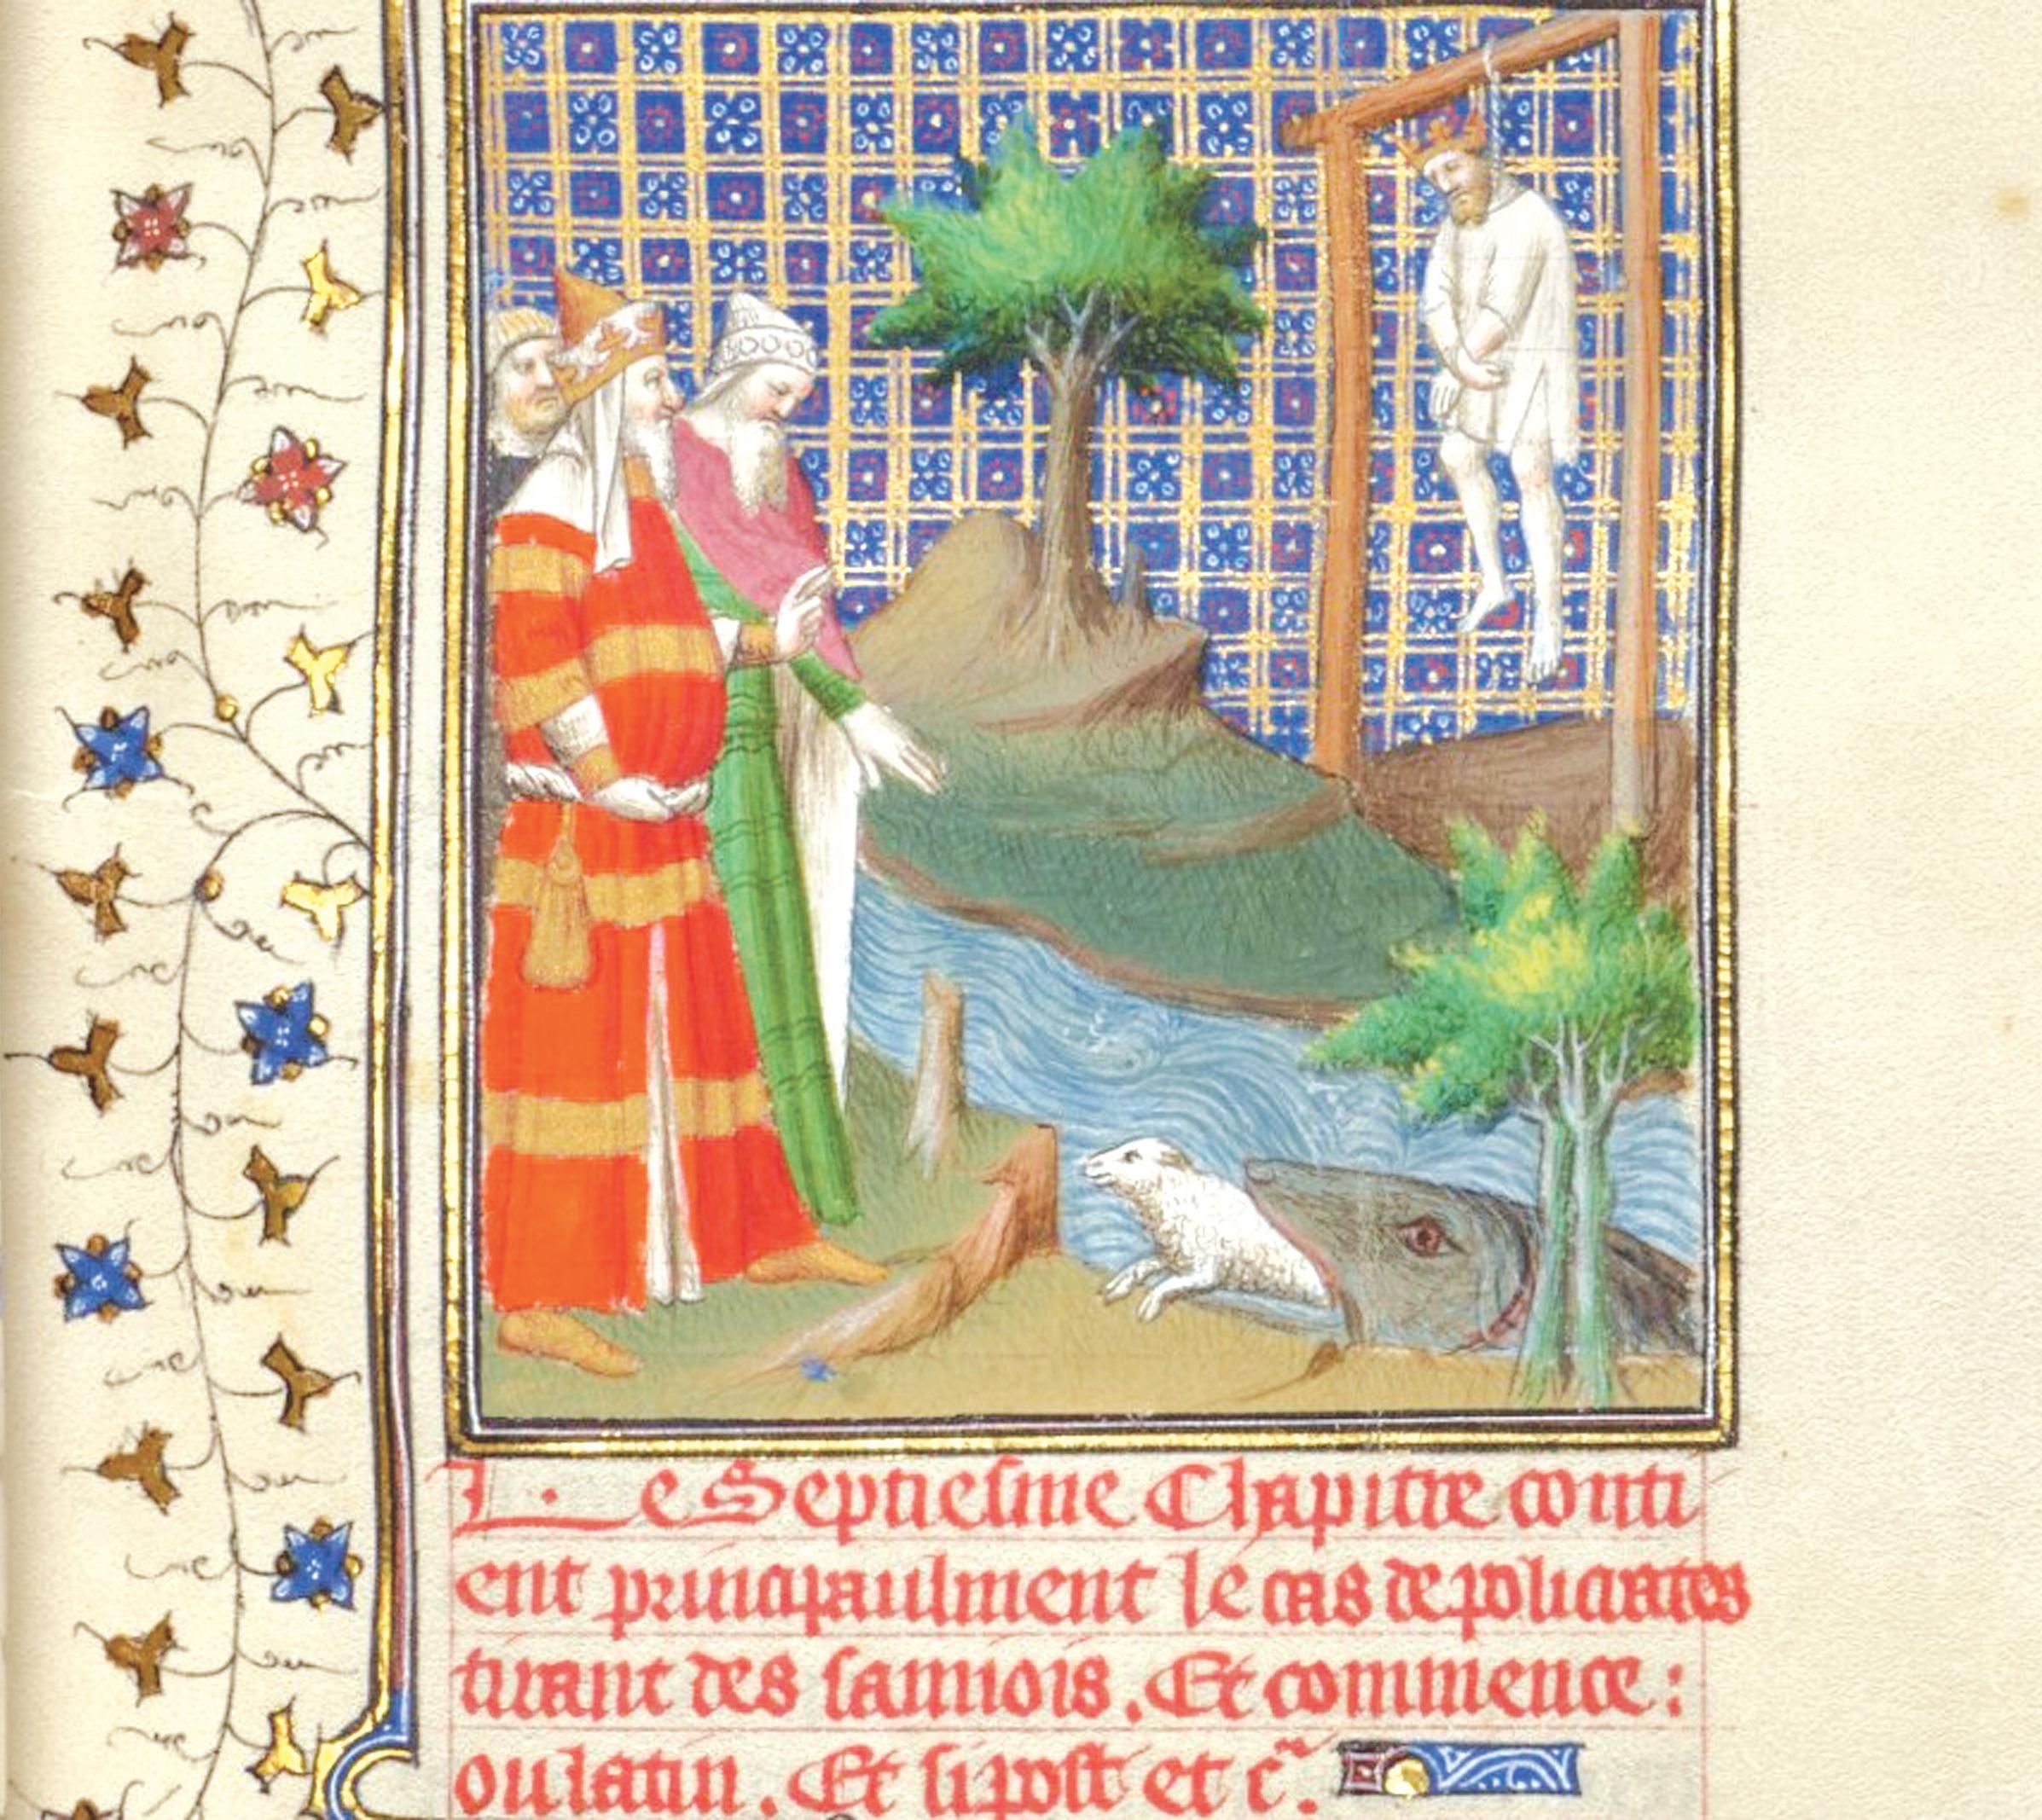 L e Septiesme Chapitre conti
ent principaulment le cas de policrates
tirant des samiois. Et commence:
ou latin. Et si post et c̃.